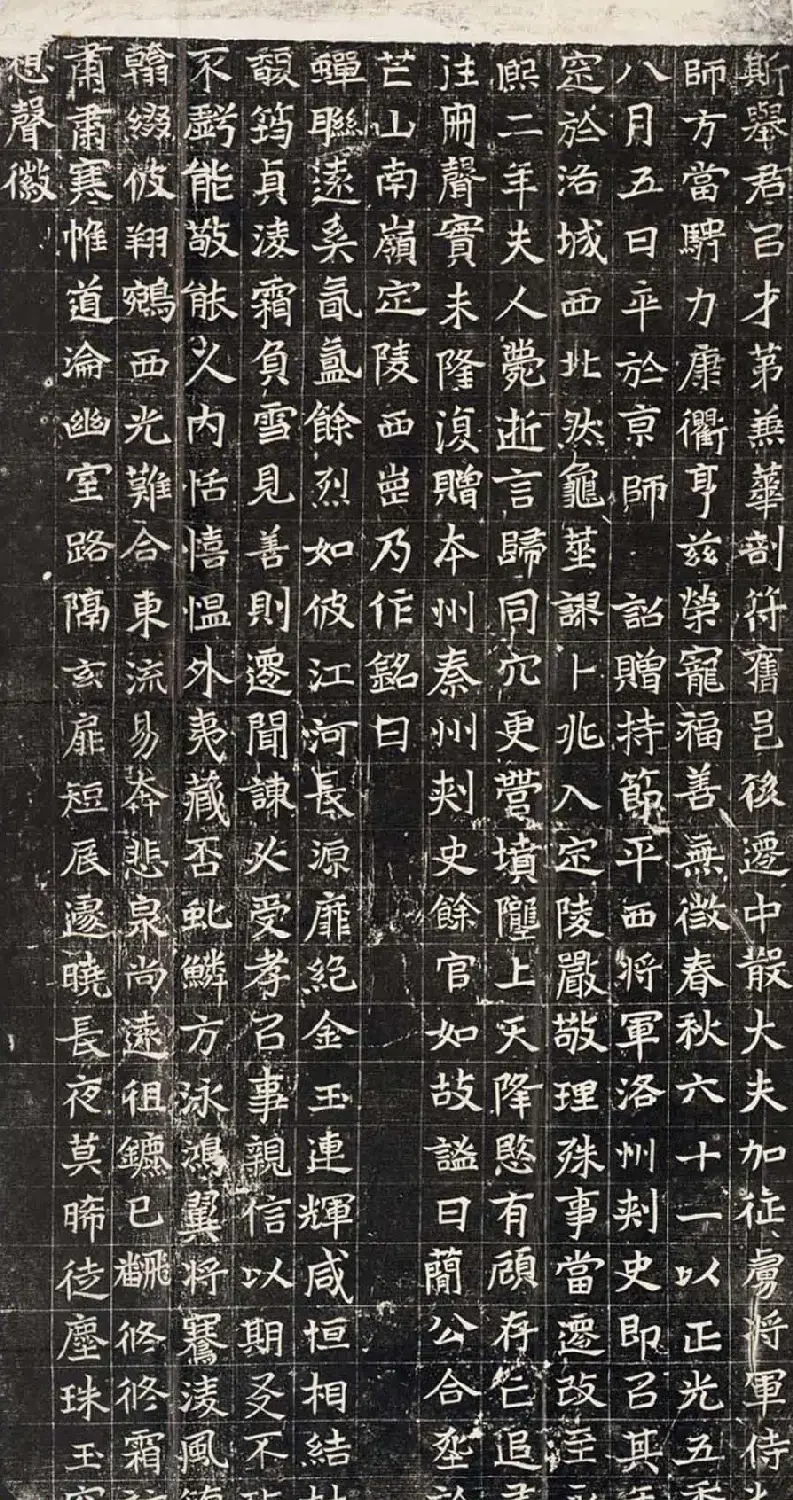 斯舉君㠯才苐兼華剖符舊邑後遷中散大夫加征虜将軍侍
師方當騁力康衢亨兹榮寵福善無徵春秋六十一以正光五
八月五日卒於京師 詔贈持節平西将軍洛州刾史即㠯其
窆於洛城西北然龜莁謀卜兆入定陵嚴敬理殊事當遷改至
熙二年夫人薨逝言歸同穴更營墳壠上天降愍有頋存亡追
往冊聲實未隆復贈本州秦州刾史餘官如故謚曰簡公合塟於
芒山南嶺定陵西崗乃作銘曰
蟬聯遠矣氤氳餘烈如彼江河長源靡絶金玉連輝咸恒相結
馥筠貞凌霜負雪見善則遷聞諫必受孝㠯事親信以期友不
不虧能敬能久内恬憘愠外夷藏否虬鱗方泳鴻翼将騫凌風
翰綴彼翔鵷西光難合東流易奔悲泉尚遠徂鑣已飜俢俢霜
肅肅寒帷道淪幽室路隔玄扉短晨遽曉長夜莫晞徒塵珠玉
想聲徽